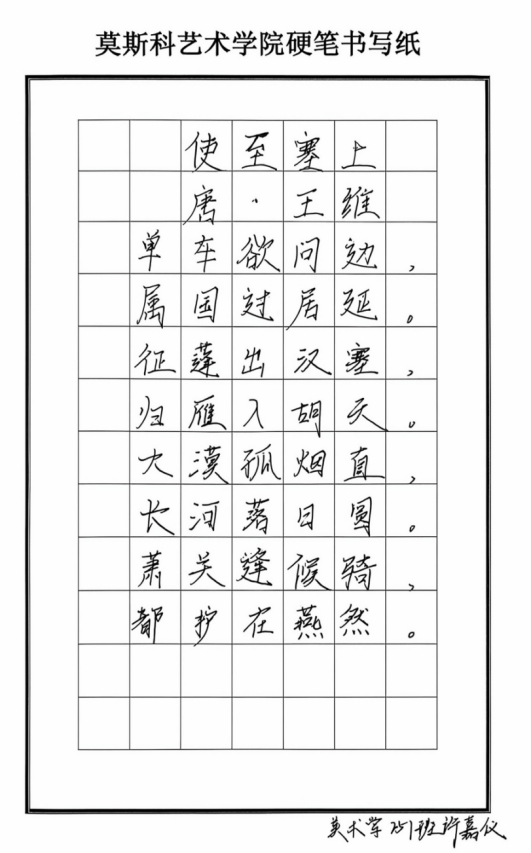 莫斯科艺术学院硬笔书写纸
使至塞上
唐·王维
单车欲问边，
属国过居延。
征蓬出汉塞，
归雁入胡天。
大漠孤烟直，
长河落日圆。
萧关逢候骑，
都护在燕然。
美术学251班许嘉仪